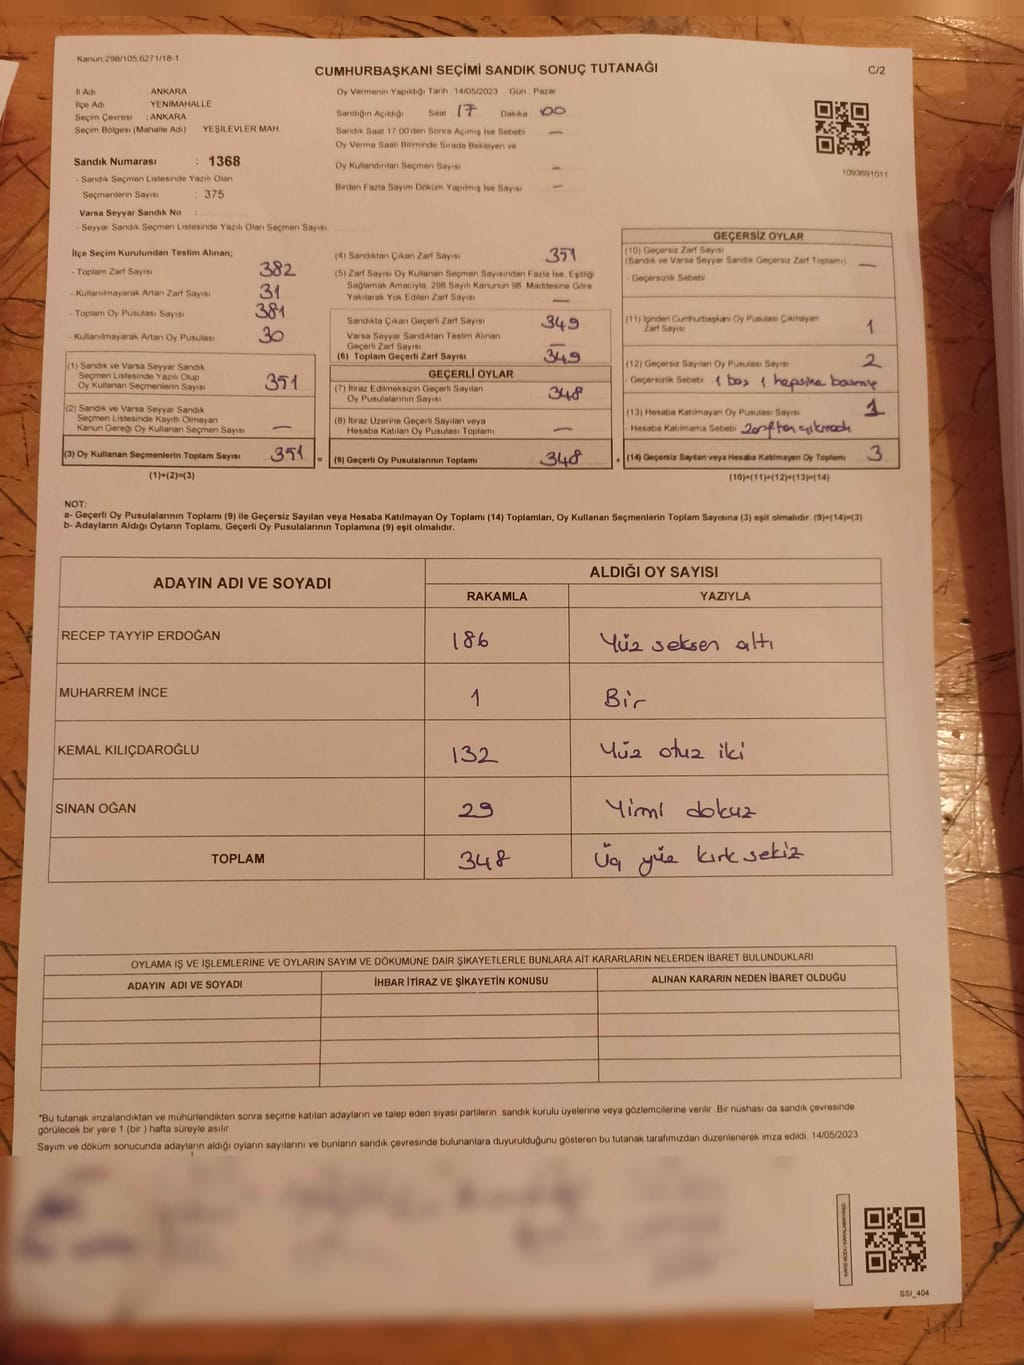 Kanun:298/105,6271/18-1
CUMHURBAŞKANI SEÇİMİ SANDIK SONUÇ TUTANAĞI
C/2
İl Adı : ANKARA
İlçe Adı : YENİMAHALLE
Seçim Çevresi : ANKARA
Seçim Bölgesi (Mahalle Adı) : YEŞİLEVLER MAH.
Sandık Numarası : 1368
- Sandık Seçmen Listesinde Yazılı Olan
Seçmenlerin Sayısı : 375
Varsa Seyyar Sandık No :
- Seyyar Sandık Seçmen Listesinde Yazılı Olan Seçmen Sayısı
Oy Vermenin Yapıldığı Tarih :14/05/2023 Gün : Pazar
Sandığın Açıldığı Saat 17 Dakika 00
Sandık Saat 17.00'den Sonra Açılmış İse Sebebi —
Oy Verme Saati Bitiminde Sırada Bekleyen ve
Oy Kullandırılan Seçmen Sayısı —
Birden Fazla Sayım Döküm Yapılmış İse Sayısı —
1093691011
İlçe Seçim Kurulundan Teslim Alınan;
- Toplam Zarf Sayısı 382
- Kullanılmayarak Artan Zarf Sayısı 31
- Toplam Oy Pusulası Sayısı 381
- Kullanılmayarak Artan Oy Pusulası 30
(1) Sandık ve Varsa Seyyar Sandık
Seçmen Listesinde Yazılı Olup
Oy Kullanan Seçmenlerin Sayısı 351
(2) Sandık ve Varsa Seyyar Sandık
Seçmen Listesinde Kayıtlı Olmayan
Kanun Gereği Oy Kullanan Seçmen Sayısı —
(3) Oy Kullanan Seçmenlerin Toplam Sayısı 351 =
(1)+(2)=(3)
(4) Sandıktan Çıkan Zarf Sayısı 351
(5) Zarf Sayısı Oy Kullanan Seçmen Sayısından Fazla İse, Eşitliği
Sağlamak Amacıyla, 298 Sayılı Kanunun 98. Maddesine Göre
Yakılarak Yok Edilen Zarf Sayısı —
Sandıkta Çıkan Geçerli Zarf Sayısı 349
Varsa Seyyar Sandıktan Teslim Alınan
Geçerli Zarf Sayısı —
(6) Toplam Geçerli Zarf Sayısı 349
GEÇERLİ OYLAR
(7) İtiraz Edilmeksizin Geçerli Sayılan
Oy Pusulalarının Sayısı 348
(8) İtiraz Üzerine Geçerli Sayılan veya
Hesaba Katılan Oy Pusulası Toplamı —
(9) Geçerli Oy Pusulalarının Toplamı : 348 +
GEÇERSİZ OYLAR
(10) Geçersiz Zarf Sayısı
(Sandık ve Varsa Seyyar Sandık Geçersiz Zarf Toplamı) —
- Geçersizlik Sebebi
(11) İçinden Cumhurbaşkanı Oy Pusulası Çıkmayan
Zarf Sayısı 1
(12) Geçersiz Sayılan Oy Pusulası Sayısı 2
- Geçersizlik Sebebi 1 boş 1 hepsine basmış
(13) Hesaba Katılmayan Oy Pusulası Sayısı 1
- Hesaba Katılmama Sebebi zarftan çıkmadı
(14) Geçersiz Sayılan veya Hesaba Katılmayan Oy Toplamı 3
(10)+(11)+(12)+(13)=(14)
NOT:
a- Geçerli Oy Pusulalarının Toplamı (9) ile Geçersiz Sayılan veya Hesaba Katılmayan Oy Toplamı (14) Toplamları, Oy Kullanan Seçmenlerin Toplam Sayısına (3) eşit olmalıdır. (9)+(14)=(3)
b- Adayların Aldığı Oyların Toplamı, Geçerli Oy Pusulalarının Toplamına (9) eşit olmalıdır.
ADAYIN ADI VE SOYADI
ALDIĞI OY SAYISI
RAKAMLA YAZIYLA
RECEP TAYYİP ERDOĞAN 186 Yüz seksen altı
MUHARREM İNCE 1 Bir
KEMAL KILIÇDAROĞLU 132 Yüz otuz iki
SİNAN OĞAN 29 Yirmi dokuz
TOPLAM 348 Üç yüz kırk sekiz
OYLAMA İŞ VE İŞLEMLERİNE VE OYLARIN SAYIM VE DÖKÜMÜNE DAİR ŞİKAYETLERLE BUNLARA AİT KARARLARIN NELERDEN İBARET BULUNDUKLARI
ADAYIN ADI VE SOYADI İHBAR İTİRAZ VE ŞİKAYETİN KONUSU ALINAN KARARIN NEDEN İBARET OLDUĞU
*Bu tutanak imzalandıktan ve mühürlendikten sonra seçime katılan adayların ve talep eden siyasi partilerin sandık kurulu üyelerine veya gözlemcilerine verilir. Bir nüshası da sandık çevresinde
görülecek bir yere 1 (bir ) hafta süreyle asılır.
Sayım ve döküm sonucunda adayların aldığı oyların sayılarını ve bunların sandık çevresinde bulunanlara duyurulduğunu gösteren bu tutanak tarafımızdan düzenlenerek imza edildi. 14/05/2023
SSI_404